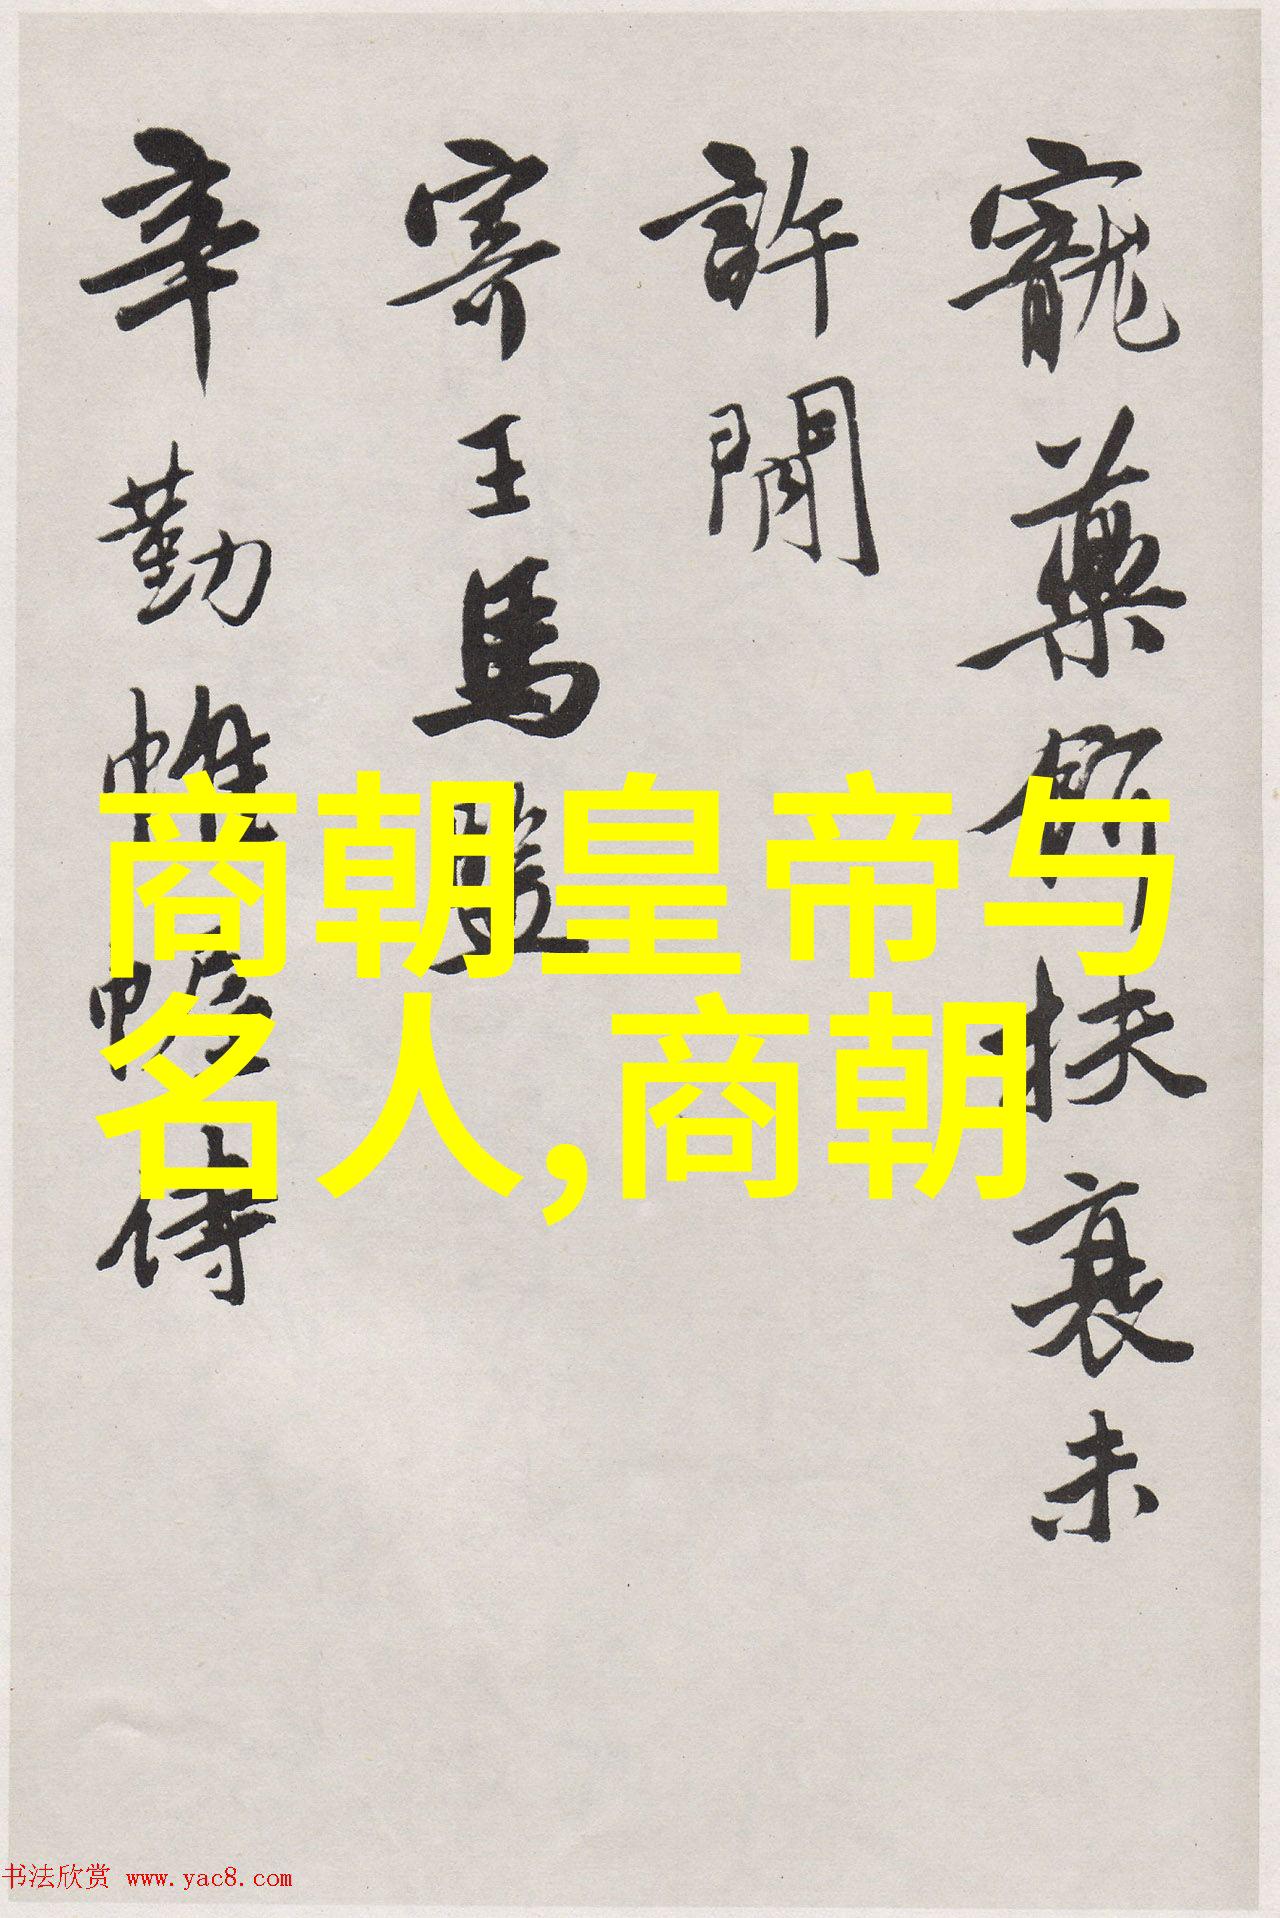 寵藥餌扶衰未
許閒
寄王馬監
辛勤帷幄侍
商朝皇帝与
名人,商朝
书法欣赏 www.yac8.com